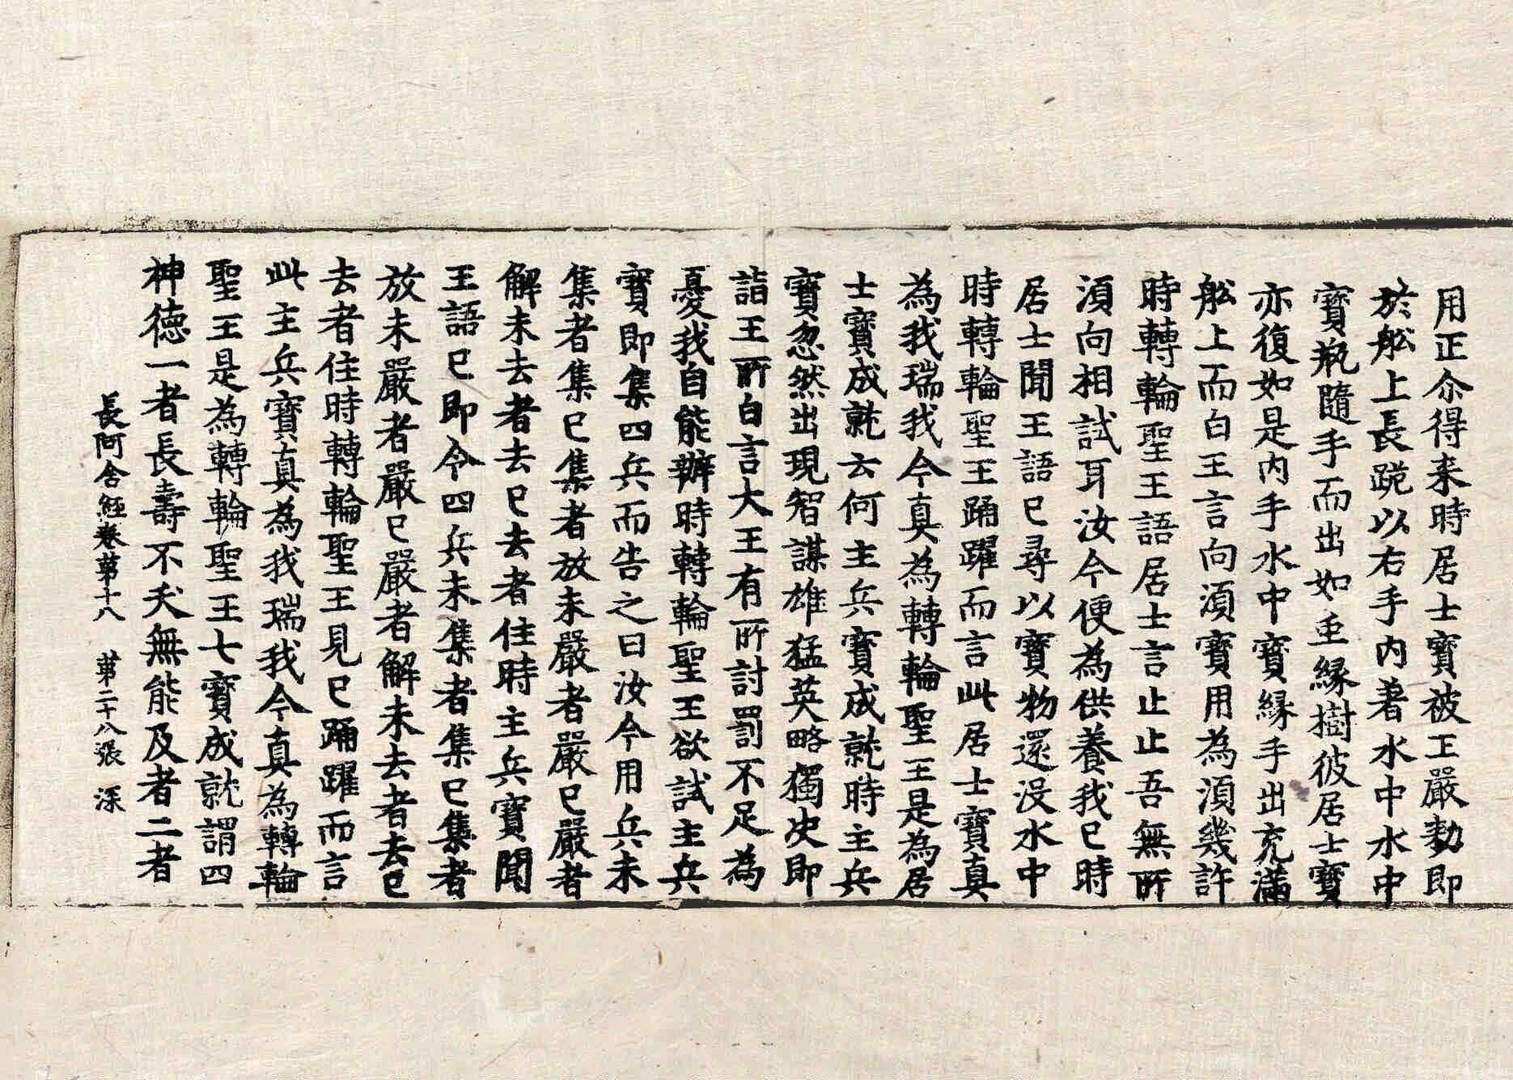 用正尒得来時居士寶被王嚴勑即
於舩上長跪以右手內著水中水中
寶瓶隨手而出如虫緣樹彼居士寶
亦復如是內手水中寶緣手出充滿
舩上而白王言向湏寶用為湏幾許
時轉輪聖王語居士言止止吾無所
湏向相試耳汝今便為供養我已時
居士聞王語已尋以寶物還没水中
時轉輪聖王踊躍而言此居士寶真
為我瑞我今真為轉輪聖王是為居
士寶成就云何主兵寶成就時主兵
寶忽然出現智謀雄猛英略獨决即
詣王所白言大王有所討罰不足為
憂我自能辦時轉輪聖王欲試主兵
寶即集四兵而告之曰汝今用兵未
集者集已集者放未嚴者嚴已嚴者
解未去者去已去者住時主兵寶聞
王語已即令四兵未集者集已集者
放未嚴者嚴已嚴者解未去者去已
去者住時轉輪聖王見已踊躍而言
此主兵寶真為我瑞我今真為轉輪
聖王是為轉輪聖王七寶成就謂四
神德一者長壽不夭無能及者二者
長阿含經卷苐十八 苐二十八張 深